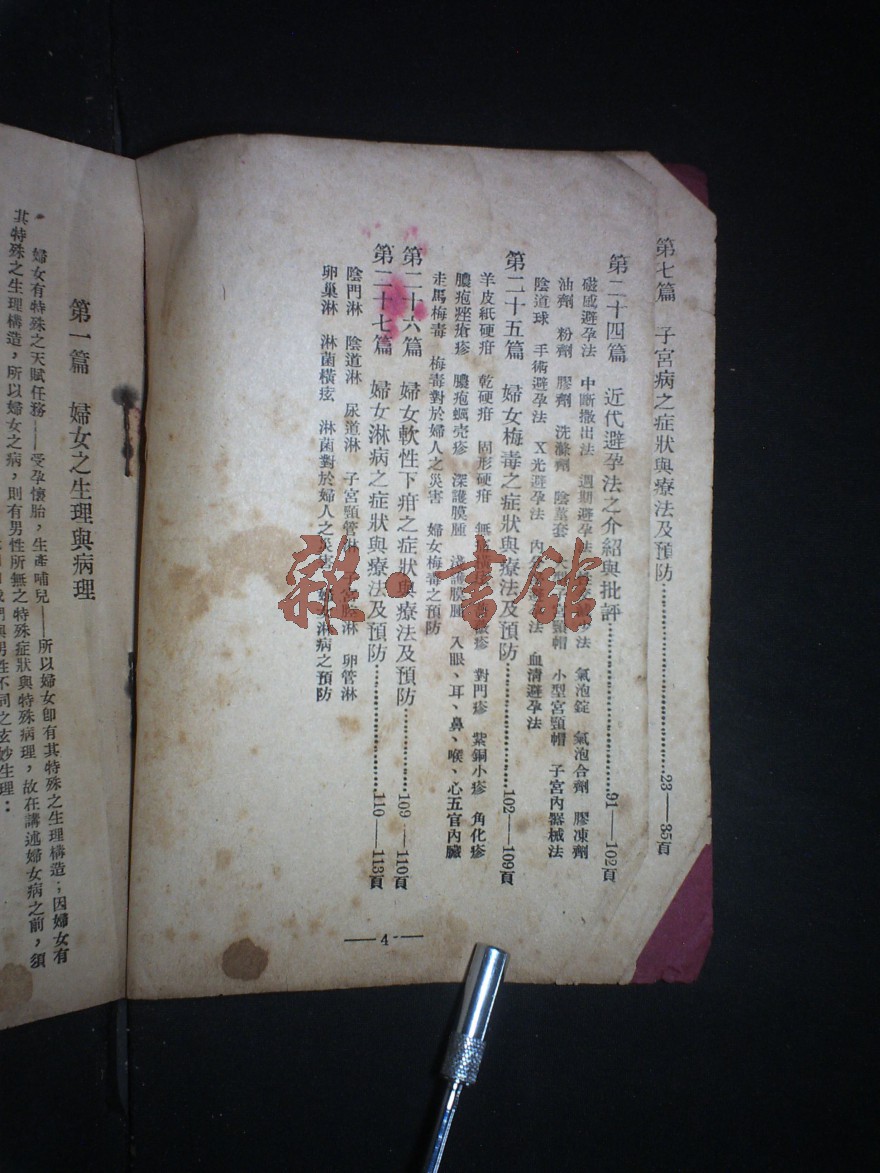 第七篇 子宮病之症狀與療法及預防……23——35頁
第二十四篇 近代避孕法之介紹與批評……91——102頁
磁感避孕法 中斷撒出法 週期避孕法 法 氣泡錠 氣泡合劑 膠凍劑
油劑 粉劑 膠劑 洗滌劑 陰莖套 頸帽 小型宮頸帽 子宮內器械法
陰道球 手術避孕法 X光避孕法 內 法 血清避孕法
第二十五篇 婦女梅毒之症狀與療法及預防……102——109頁
羊皮紙硬疳 乾硬疳 固形硬疳 無 疹 對門疹 紫銅小疹 角化疹
膿疱痤瘡疹 膿疱蠣壳疹 深護膜腫 淺護膜腫 入眼、耳、鼻、喉、心五官內臟
走馬梅毒 梅毒對於婦人之災害 婦女梅毒之預防
第二十六篇 婦女軟性下疳之症狀與療法及預防……109——110頁
第二十七篇 婦女淋病之症狀與療法及預防……110——113頁
陰門淋 陰道淋 尿道淋 子宮頸管淋 淋 卵管淋
卵巢淋 淋菌橫痃 淋菌對於婦人之災害 婦女淋病之預防
——4——
第一篇 婦女之生理與病理
婦女有特殊之天賦任務——受孕懷胎，生產哺兒——所以婦女卽有其特殊之生理構造；因婦女有
其特殊之生理構造，所以婦女之病，則有男性所無之特殊症狀與特殊病理，故在講述婦女病之前，須
與男性不同之玄妙生理：
雜·書館